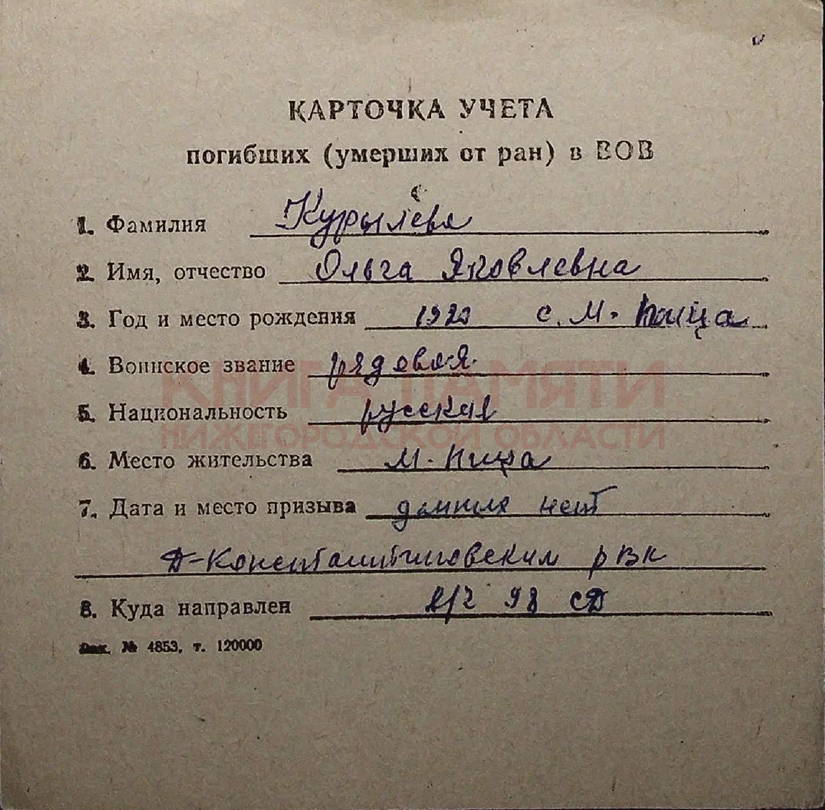 КАРТОЧКА УЧЕТА
погибших (умерших от ран) в ВОВ
1. Фамилия Курылева
2. Имя, отчество Ольга Яковлевна
3. Год и место рождения 1923 с. М. Пица
4. Воинское звание рядовая
5. Национальность русская
КНИГА ПАМЯТИ
НИЖЕГОРОДСКОЙ ОБЛАСТИ
6. Место жительства М. Пица
7. Дата и место призыва данных нет
Д-Константиновским рвк
8. Куда направлен в/ч 98 сд
Зак. № 4853, т. 120000